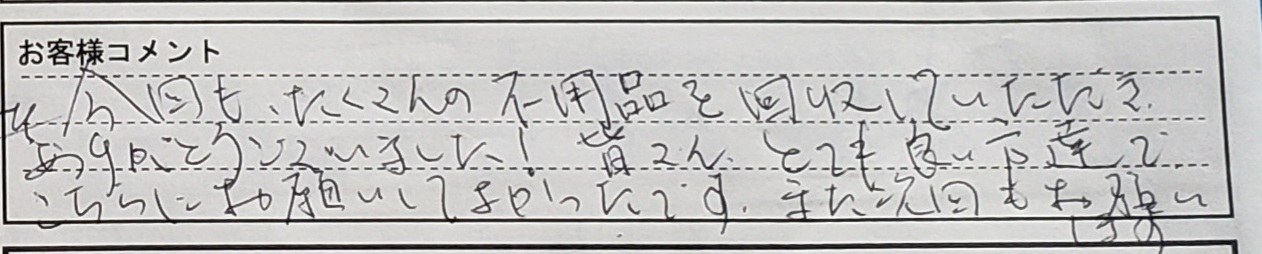 お客様コメント
今回も、たくさんの不用品を回収していただき、
ありがとうございました！皆さん、とても良い方達で、
こちらにお願いしてよかったです。また次回もお願い
します